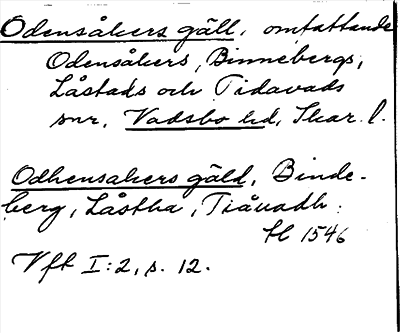 Odensåkers gäll, omfattande
Odensåkers, Binnebergs,
Låstads och Tidavads
snr, Vadsbo hd, Skar. l.
Odhensakers gäld, Binde-
berg, Låstha, Tiåvadh.
tl 1546
Vft I:2, s. 12.